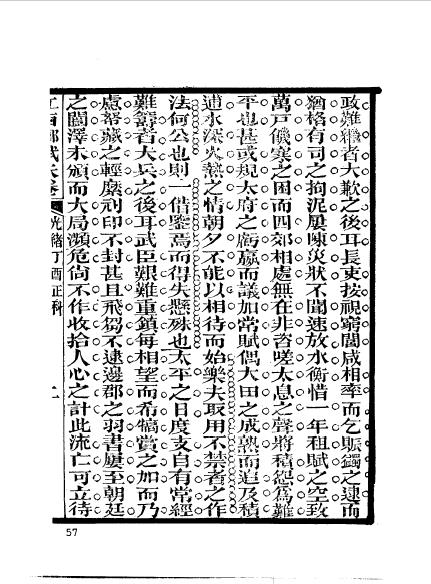 政難繼者大歉之後耳長吏按視窮閻咸相率而乞賑蠲之逮而
猶格有司之拘泥屢陳災狀不聞速放水衡惜一年租賦之空致
萬戶饑寒之困而四郊相處無在非咨嗟太息之聲將積怨爲難
平也甚或規太府之虧贏而議加常賦偶大田之成熟而追及積
逋水深火熱之情朝夕不能以相待而始樂夫取用不禁者之作
法何公也則一借鑒焉而得失懸殊也太平之日度支自有常經
難籌者大兵之後耳武臣艱難重鎮每相望而希犒賞之加而乃
慮帑藏之輕糜刓印不封甚且飛芻不逮邊郡之羽書屢至朝廷
之闓澤未頒而大局瀕危尙不作收拾人心之計此流亡可立待
江西鄉試朱卷 光緒丁酉正科 二
57